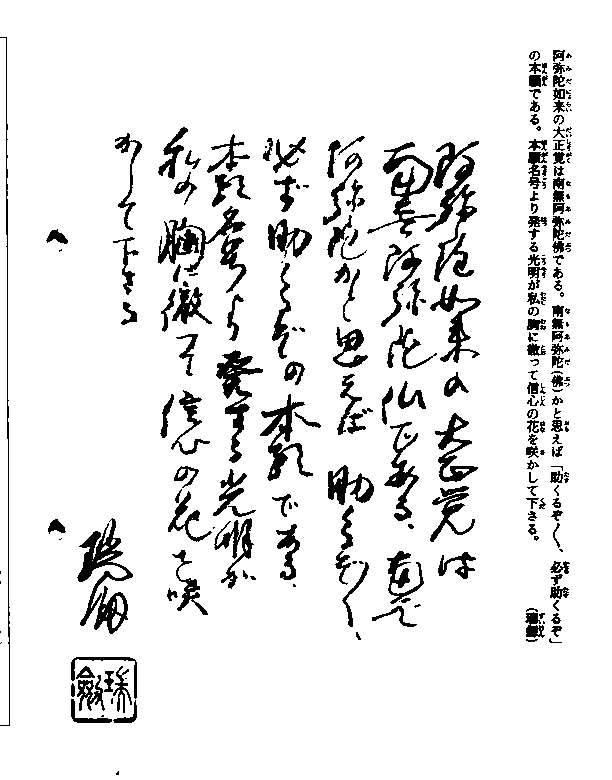 阿弥陀如来の大正覚は南無阿弥陀佛である。南無阿弥陀(佛)かと思えば「助くるぞ〱、必ず助くるぞ」
の本願である。本願名号より発する光明が私の胸に徹って信心の花を咲かして下さる。
(瑞劔)
阿弥陀如来の大正覚は
南無阿弥陀仏である、南無
阿弥陀かと思えば助くるぞ〱、
必ず助くるぞの本願である、
本願名号より発する光明が
私の胸に徹って信心の花を咲
かして下さる
瑞劔
瑞劔